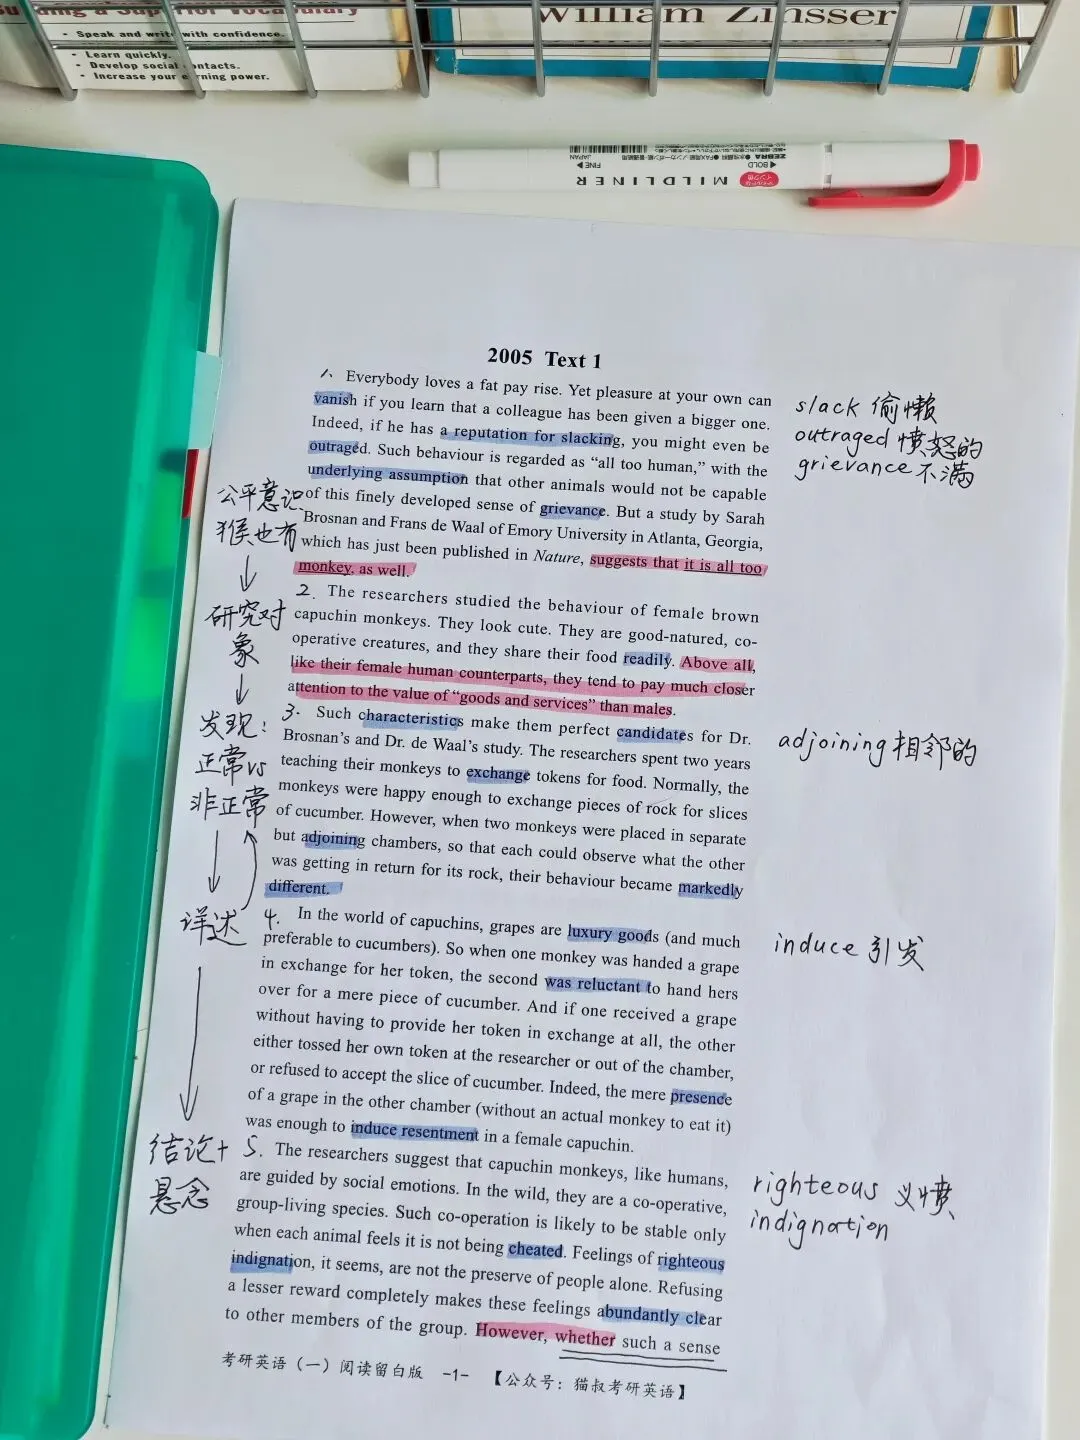 Superior Vocabulary
• Speak and write with confidence.
• Learn quickly.
• Develop social contacts.
• Increase your earning power.
William Zinsser
MILDLINER
ZEBRA
BOLD
FINE
JAPAN
2005 Text 1
1、Everybody loves a fat pay rise. Yet pleasure at your own can
vanish if you learn that a colleague has been given a bigger one.
Indeed, if he has a reputation for slacking, you might even be
outraged. Such behaviour is regarded as “all too human,” with the
underlying assumption that other animals would not be capable
of this finely developed sense of grievance. But a study by Sarah
Brosnan and Frans de Waal of Emory University in Atlanta, Georgia,
which has just been published in Nature, suggests that it is all too
monkey, as well.
2. The researchers studied the behaviour of female brown
capuchin monkeys. They look cute. They are good-natured, co-
operative creatures, and they share their food readily. Above all,
like their female human counterparts, they tend to pay much closer
attention to the value of “goods and services” than males.
3. Such characteristics make them perfect candidates for Dr.
Brosnan’s and Dr. de Waal’s study. The researchers spent two years
teaching their monkeys to exchange tokens for food. Normally, the
monkeys were happy enough to exchange pieces of rock for slices
of cucumber. However, when two monkeys were placed in separate
but adjoining chambers, so that each could observe what the other
was getting in return for its rock, their behaviour became markedly
different.
4. In the world of capuchins, grapes are luxury goods (and much
preferable to cucumbers). So when one monkey was handed a grape
in exchange for her token, the second was reluctant to hand hers
over for a mere piece of cucumber. And if one received a grape
without having to provide her token in exchange at all, the other
either tossed her own token at the researcher or out of the chamber,
or refused to accept the slice of cucumber. Indeed, the mere presence
of a grape in the other chamber (without an actual monkey to eat it)
was enough to induce resentment in a female capuchin.
5. The researchers suggest that capuchin monkeys, like humans,
are guided by social emotions. In the wild, they are a co-operative,
group-living species. Such co-operation is likely to be stable only
when each animal feels it is not being cheated. Feelings of righteous
indignation, it seems, are not the preserve of people alone. Refusing
a lesser reward completely makes these feelings abundantly clear
to other members of the group. However, whether such a sense
考研英语（一）阅读留白版 -1- 【公众号：猫叔考研英语】
公平意识
猴也有
研究对
象
发现：
正常vs
非正常
详述
结论+
悬念
slack 偷懒
outraged 愤怒的
grievance 不满
adjoining 相邻的
induce 引发
righteous 义愤
indignation